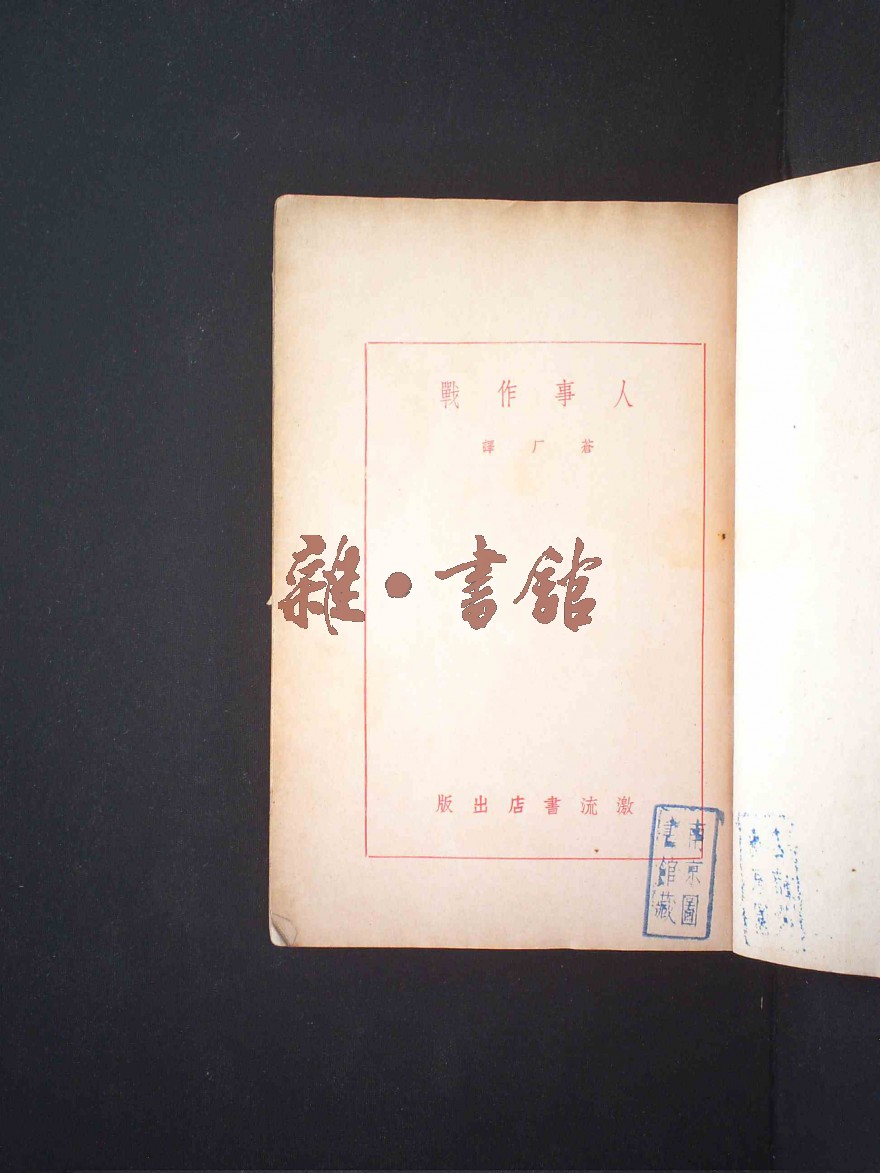 人事作戰
蒼厂譯
雜·書館
激流書店出版
南京圖
書館藏